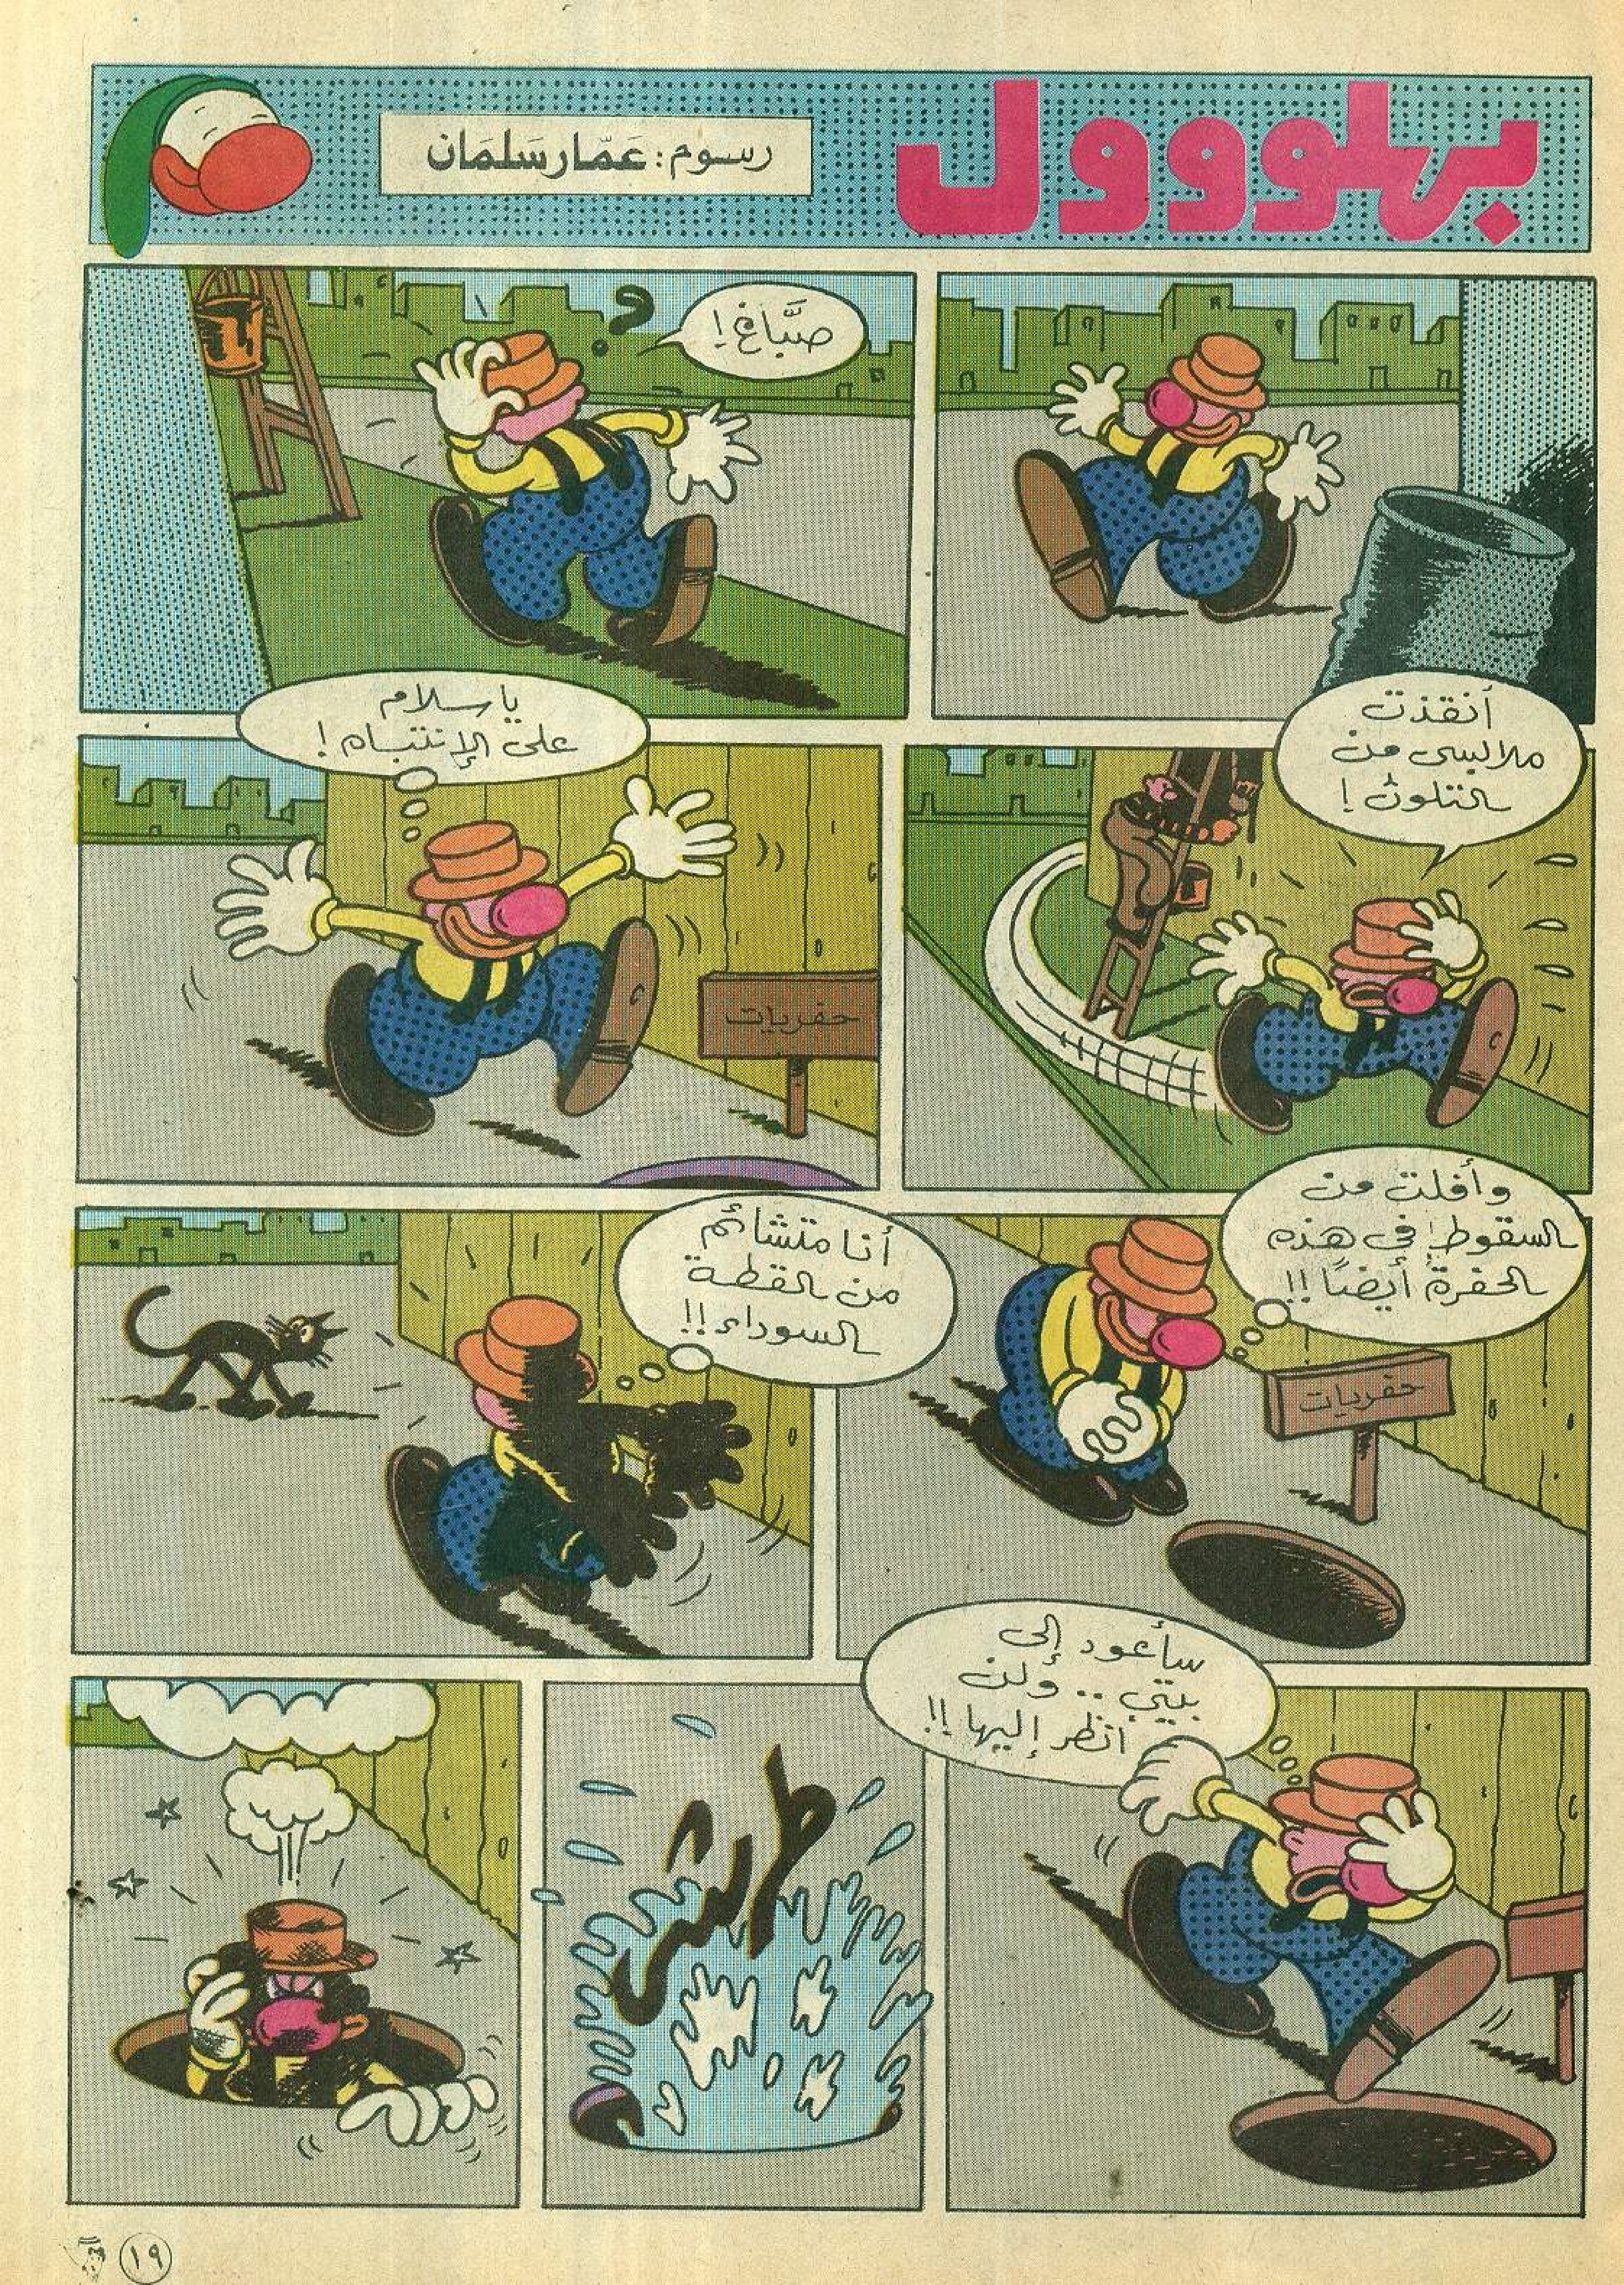 بهلووول
رسوم: عَمّار سَلمَان
صبَّاغ!
?
أنقذت
ملابسي من
التلوث!
يا سلام
على الإنتباه!
حفريات
وأفلت من
السقوط في هذه
الحفرة أيضًا!!
حفريات
أنا متشائم
من القطة
السوداء!!
سأعود إلى
بيتي.. ولن
انظر إليها!!
طرش
١٩